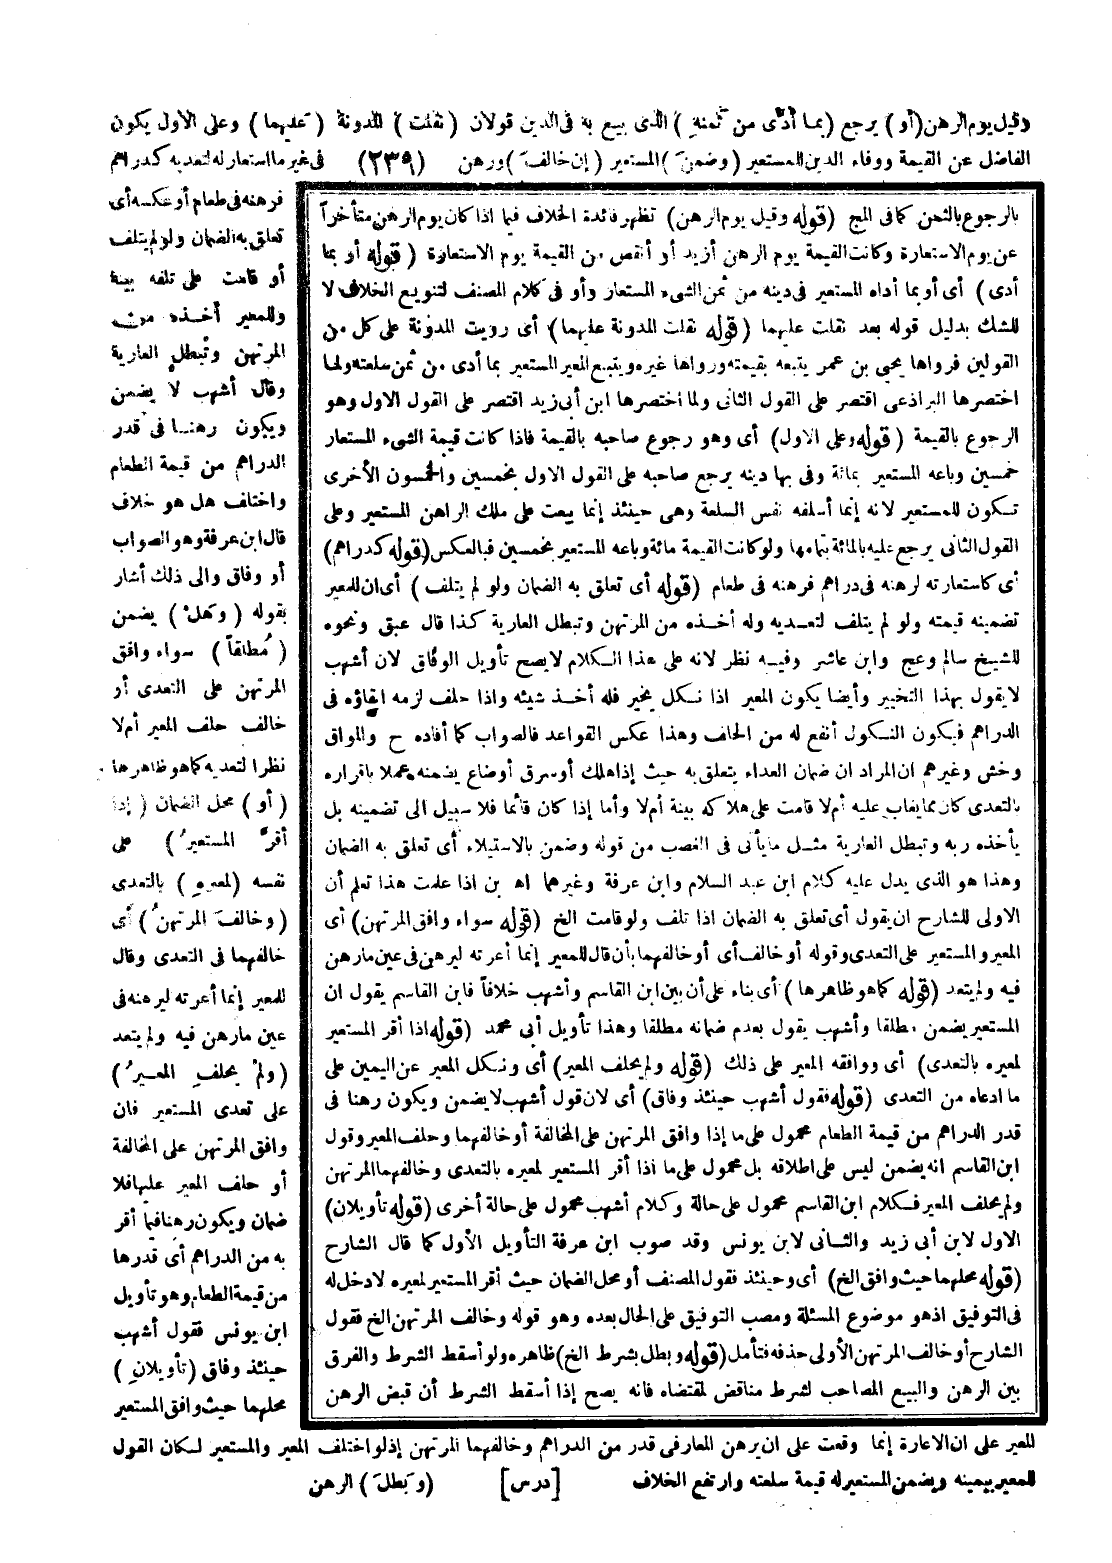 وقيل يوم الرهن (أو) يرجع (بما أدَّى من ثمنهِ) الذى بيع به فى الدين قولان (نقلت) المدونة (عليهما) وعلى الأول يكون
الفاضل عن القيمة ووفاء الدين للمستعير (وضمنَ) المستعير (إن خالفَ) ورهن (٢٣٩) فى غير ما استعار له لتعديه كدراهم
فرهنه فى طعام أو عكسه أى
تعلق به الضمان ولو لم يتلف
أو قامت على تلفه بينة
وللمعير أخذه من
المرتهن وتبطل العارية
وقال أشهب لا يضمن
ويكون رهنا فى قدر
الدراهم من قيمة الطعام
واختلف هل هو خلاف
قال ابن عرفة وهو الصواب
أو وفاق والى ذلك أشار
بقوله (وهلْ) يضمن
(مُطلقاً) سواء وافق
المرتهن على التعدى أو
خالف حلف المعير أم لا
نظرا لتعديه كما هو ظاهرها
(أو) محل الضمان (إذا
أقرَّ المستعيرُ) على
نفسه (لمعيرهِ) بالتعدى
(وخالفَ المرتهنُ) أى
خالفهما فى التعدى وقال
للمعير إنما أعرته ليرهنه فى
عين مارهن فيه ولم يتعد
(ولمْ يحلفِ المعيرُ)
على تعدى المستعير فان
وافق المرتهن على المخالفة
أو حلف المعير عليها فلا
ضمان ويكون رهنا فيما أقر
به من الدراهم أى قدرها
من قيمة الطعام وهو تأويل
ابن يونس فقول أشهب
حينئذ وفاق (تأويلانِ)
محلهما حيث وافق المستعير
للمعير على ان الاعارة إنما وقعت على ان يرهن المعار فى قدر من الدراهم وخالفهما المرتهن إذ لو اختلف المعير والمستعير لكان القول
للمعير بيمينه ويضمن المستعير له قيمة سلعته وارتفع الخلاف [درس] (وَبطلَ) الرهن
بالرجوع بالثمن كما فى المج (قوله وقيل يوم الرهن) تظهر فائدة الخلاف فيما اذا كان يوم الرهن متأخراً
عن يوم الاستعارة وكانت القيمة يوم الرهن أزيد أو أنقص من القيمة يوم الاستعارة (قوله أو بما
أدى) أى أو بما أداه المستعير فى دينه من ثمن الشىء المستعار وأو فى كلام المصنف لتنويع الخلاف لا
للشك بدليل قوله بعد نقلت عليهما (قوله نقلت المدونة عليهما) أى رويت المدونة على كل من
القولين فرواها يحيى بن عمر يتبعه بقيمته ورواها غيره ويتبع المعير المستعير بما أدى من ثمن سلعته ولما
اختصرها البراذعى اقتصر على القول الثانى ولما اختصرها ابن أبى زيد اقتصر على القول الاول وهو
الرجوع بالقيمة (قوله وعلى الاول) أى وهو رجوع صاحبه بالقيمة فاذا كانت قيمة الشىء المستعار
خمسين وباعه المستعير بمائة وفى بها دينه يرجع صاحبه على القول الاول بخمسين والخمسون الأخرى
تكون للمستعير لانه إنما أسلفه نفس السلعة وهى حينئذ إنما بيعت على ملك الراهن المستعير وعلى
القول الثانى يرجع عليه بالمائة بتمامها ولو كانت القيمة مائة وباعه المستعير بخمسين فبالعكس (قوله كدراهم)
أى كاستعارته لرهنه فى دراهم فرهنه فى طعام (قوله أى تعلق به الضمان ولو لم يتلف) أى ان للمعير
تضمينه قيمته ولو لم يتلف لتعديه وله أخذه من المرتهن وتبطل العارية كذا قال عبق ونحوه
للشيخ سالم وعج وابن عاشر وفيه نظر لانه على هذا الكلام لا يصح تأويل الوفاق لان أشهب
لا يقول بهذا التخيير وأيضا يكون المعير اذا نكل يخير فله أخذ شيئه واذا حلف لزمه ابقاؤه فى
الدراهم فيكون النكول أنفع له من الحلف وهذا عكس القواعد فالصواب كما أفاده ح والمواق
وخش وغيرهم ان المراد ان ضمان العداء يتعلق به حيث إذا هلك أو سرق أو ضاع يضمنه عملا باقراره
بالتعدى كان مما يغاب عليه أم لا قامت على هلاكه بينة أم لا وأما إذا كان قائما فلا سبيل الى تضمينه بل
يأخذه ربه وتبطل العارية مثل ما يأتى فى الغصب من قوله وضمن بالاستيلاء أى تعلق به الضمان
وهذا هو الذى يدل عليه كلام ابن عبد السلام وابن عرفة وغيرهما اه بن اذا علمت هذا تعلم أن
الاولى للشارح ان يقول أى تعلق به الضمان اذا تلف ولو قامت الخ (قوله سواء وافق المرتهن) أى
المعير والمستعير على التعدى وقوله أو خالف أى أو خالفهما بأن قال للمعير إنما أعرته ليرهن فى عين مارهن
فيه ولم يتعد (قوله كما هو ظاهرها) أى بناء على أن بين ابن القاسم وأشهب خلافاً فابن القاسم يقول ان
المستعير يضمن مطلقا وأشهب يقول بعدم ضمانه مطلقا وهذا تأويل أبى محمد (قوله اذا أقر المستعير
لمعيره بالتعدى) أى ووافقه المعير على ذلك (قوله ولم يحلف المعير) أى ونكل المعير عن اليمين على
ما ادعاه من التعدى (قوله فقول أشهب حينئذ وفاق) أى لان قول أشهب لا يضمن ويكون رهنا فى
قدر الدراهم من قيمة الطعام محمول على ما إذا وافق المرتهن على المخالفة أو خالفهما وحلف المعير وقول
ابن القاسم انه يضمن ليس على اطلاقه بل محمول على ما اذا أقر المستعير لمعيره بالتعدى وخالفهما المرتهن
ولم يحلف المعير فكلام ابن القاسم محمول على حالة وكلام أشهب محمول على حالة أخرى (قوله تأويلان)
الاول لابن أبى زيد والثانى لابن يونس وقد صوب ابن عرفة التأويل الأول كما قال الشارح
(قوله محلهما حيث وافق الخ) أى وحينئذ فقول المصنف أو محل الضمان حيث أقر المستعير لمعيره لا دخل له
فى التوفيق اذ هو موضوع المسئلة ومصب التوفيق على الحال بعده وهو قوله وخالف المرتهن الخ فقول
الشارح أو خالف المرتهن الأولى حذفه فتأمل (قوله وبطل بشرط الخ) ظاهره ولو أسقط الشرط والفرق
بين الرهن والبيع المصاحب لشرط مناقض لمقتضاه فانه يصح إذا أسقط الشرط أن قبض الرهن